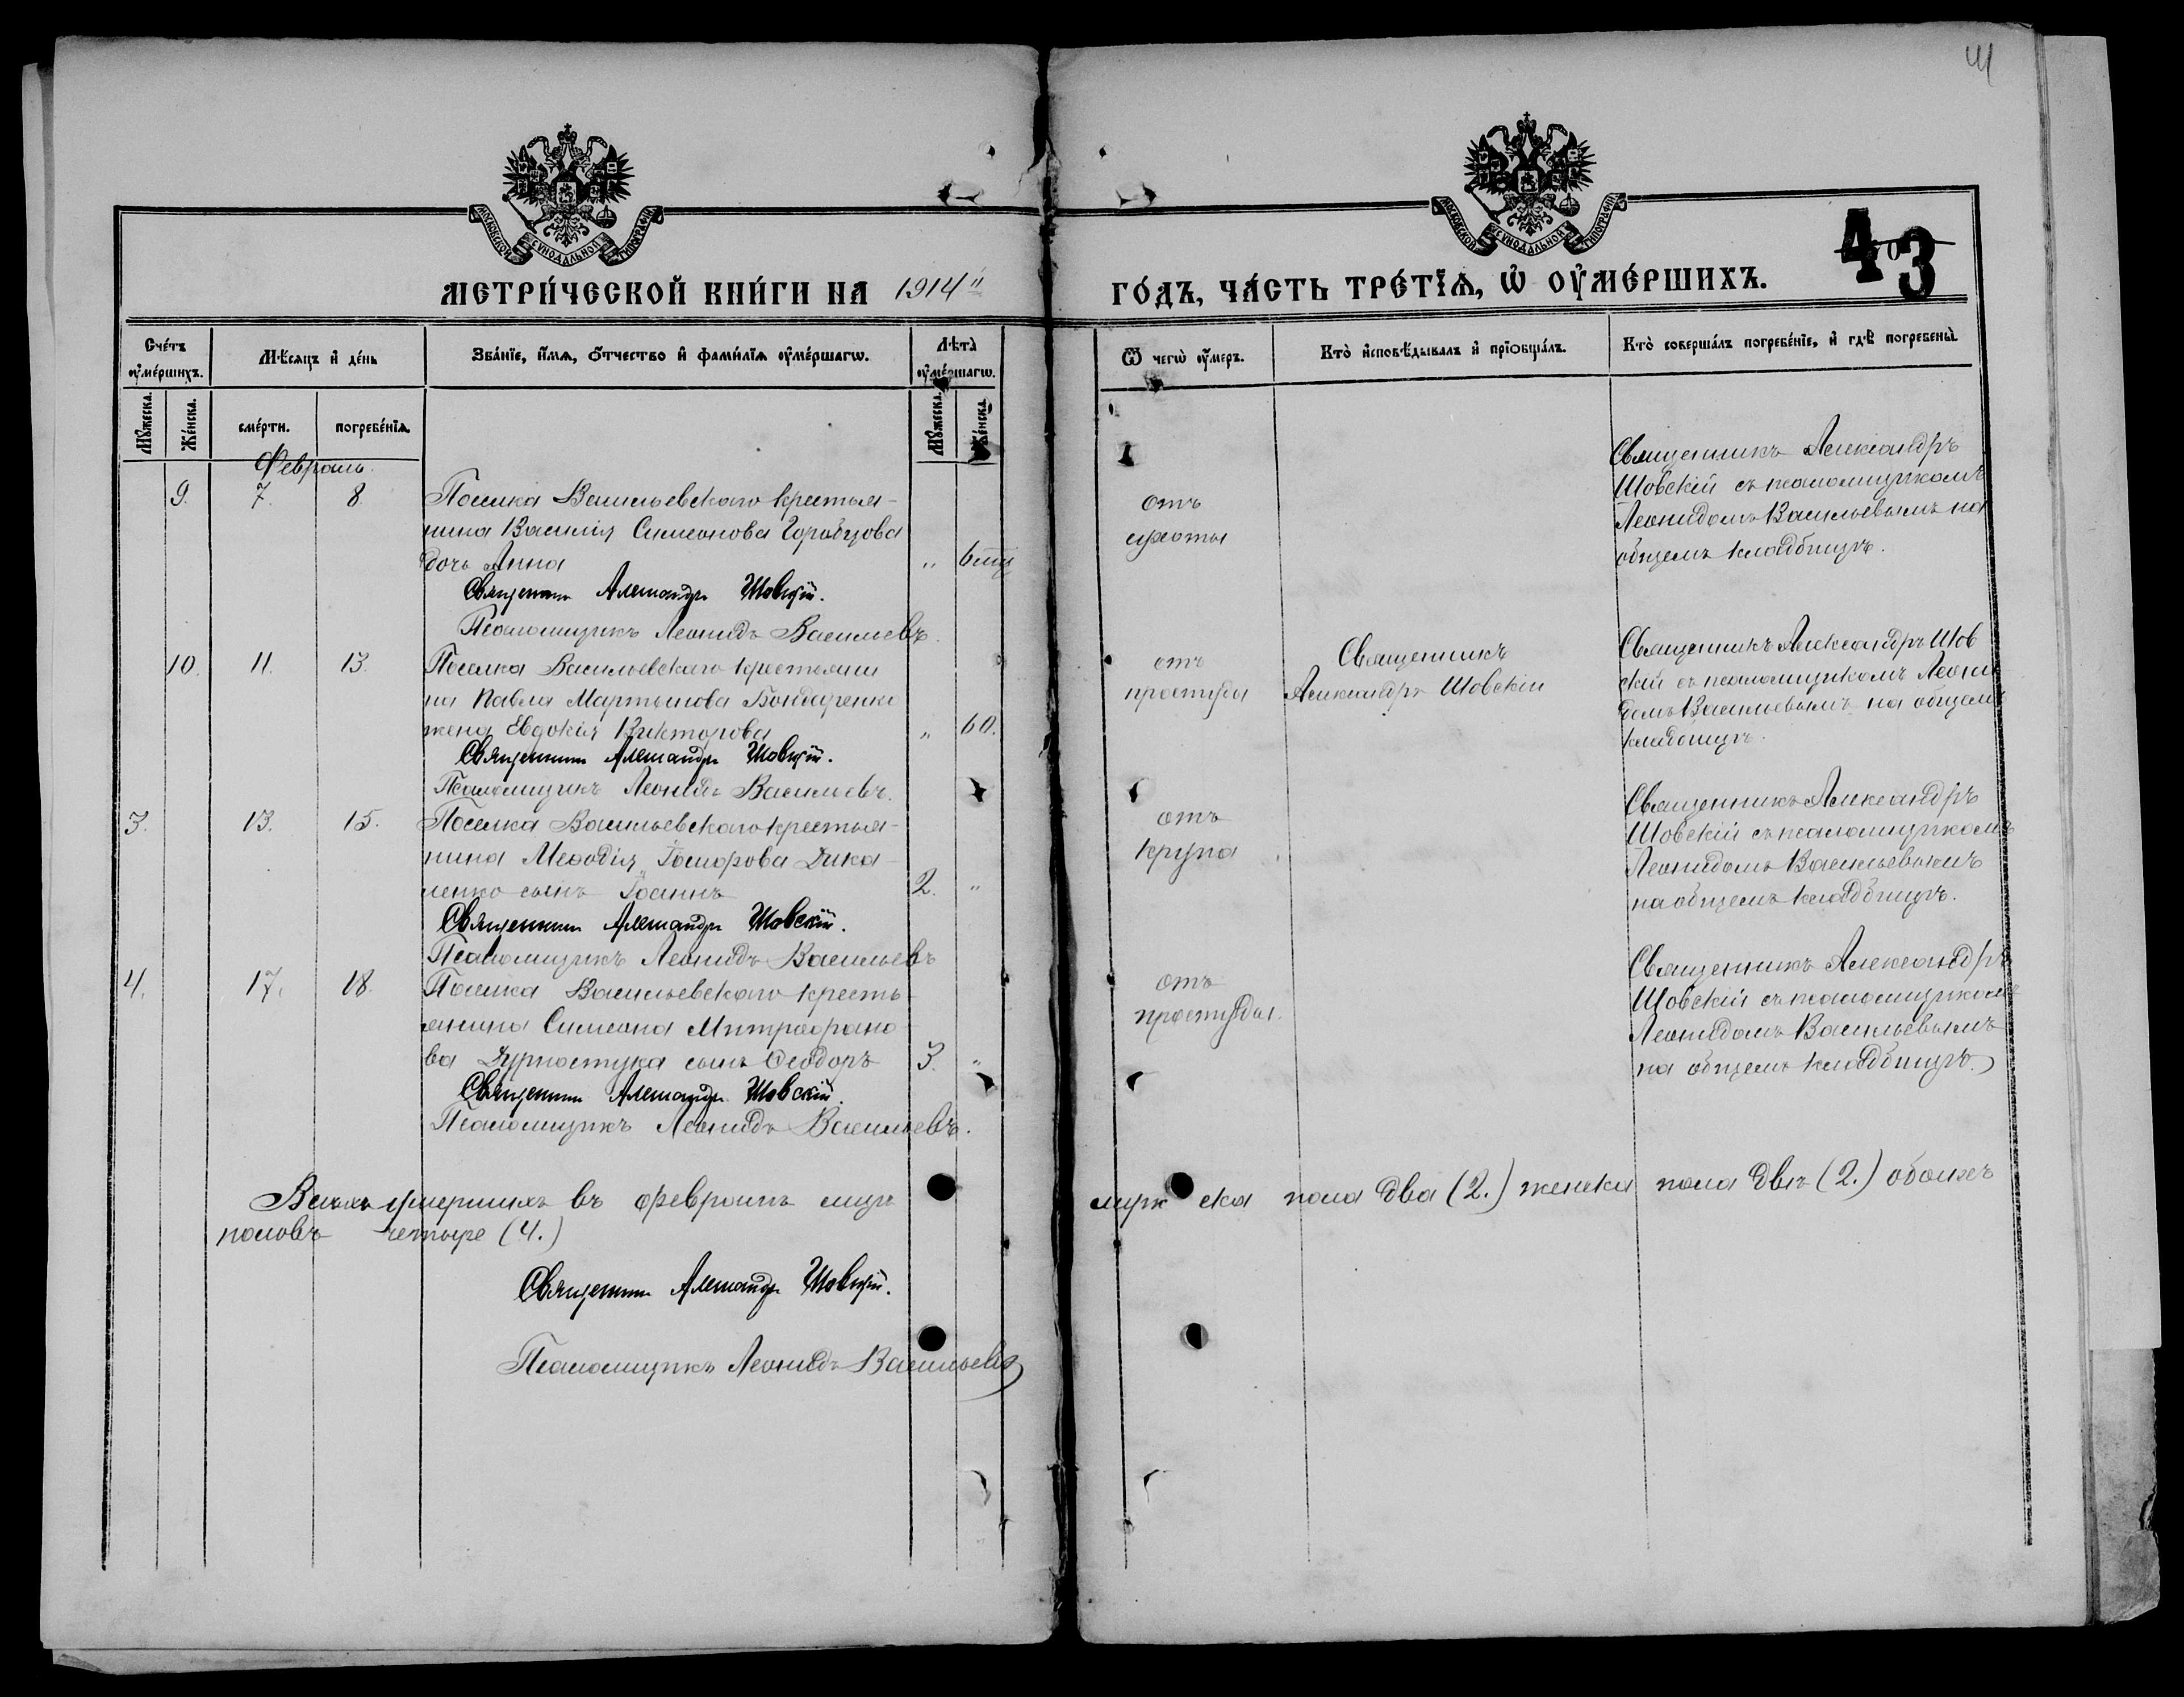 41
МОСКОВСКОЙ СУНОДАЛЬНОЙ ТИПОГРАФІИ
МОСКОВСКОЙ СУНОДАЛЬНОЙ ТИПОГРАФІИ
403
МЕТРИ́ЧЕСКОЙ КНИ́ГИ НА 1914й ГО́ДЪ, ЧА́СТЬ ТРЕ́ТЇѦ, Ѡ ОУМЕ́РШИХЪ.
Сче́тъ оумершихъ.
Мѣ́сяцъ и де́нь
Зва́нїе, имя, о́тчество и фами́лїя оуме́ршагѡ.
Лѣта̀ оуме́ршагѡ.
Ѿ чегѡ̀ оумеръ.
Кто̀ исповѣ́дывалъ и прїобща́лъ.
Кто̀ соверша́лъ погребе́нїе, и гдѣ̀ погребены̀.
Мꙋжеска.
Же́нска.
сме́рти.
погребе́нїя.
Мꙋжеска.
Же́нска.
Февраль.
9. 7. 8
Поселка Васильевскаго крестья-
нина Василія Симеонова Горобцова
дочь Анна " 6 мц
Священникъ Александръ Шовскій.
Псаломщикъ Леонидъ Васильевъ.
отъ
сухоты
Священникъ Александръ
Шовскій съ псаломщикомъ
Леонидомъ Васильевымъ на
общемъ кладбищѣ.
10. 11. 13.
Поселка Васильевскаго крестьяни
на Павла Мартынова Бондаренки
жена Евдокія Викторова " 60.
Священникъ Александръ Шовскій.
Псаломщикъ Леонидъ Васильевъ.
отъ
простуды
Священникъ
Александръ Шовскій
Священникъ Александръ Шов
скій съ псаломщикомъ Леони
домъ Васильевымъ на общемъ
кладбищѣ.
3. 13. 15.
Поселка Васильевскаго крестья-
нина Меѳодія Дика-
ленко сынъ Іоаннъ 2. "
Священникъ Александръ Шовскій.
Псаломщикъ Леонидъ Васильевъ
отъ
крупа
Священникъ Александръ
Шовскій съ псаломщикомъ
Леонидомъ Васильевымъ
на общемъ кладбищѣ.
4. 17. 18.
Поселка Васильевскаго кресть-
янина Симеона Митрофано
ва сынъ Ѳеодоръ 3. "
Священникъ Александръ Шовскій.
Псаломщикъ Леонидъ Васильевъ.
отъ
простуды.
Священникъ Александръ
Шовскій съ псаломщикомъ
Леонидомъ Васильевымъ
на общемъ кладбищѣ.
Всѣхъ умершихъ въ февралѣ мцѣ мужеска пола два (2.) женска пола двѣ (2.) обоихъ
половъ четыре (4.)
Священникъ Александръ Шовскій.
Псаломщикъ Леонидъ Васильевъ